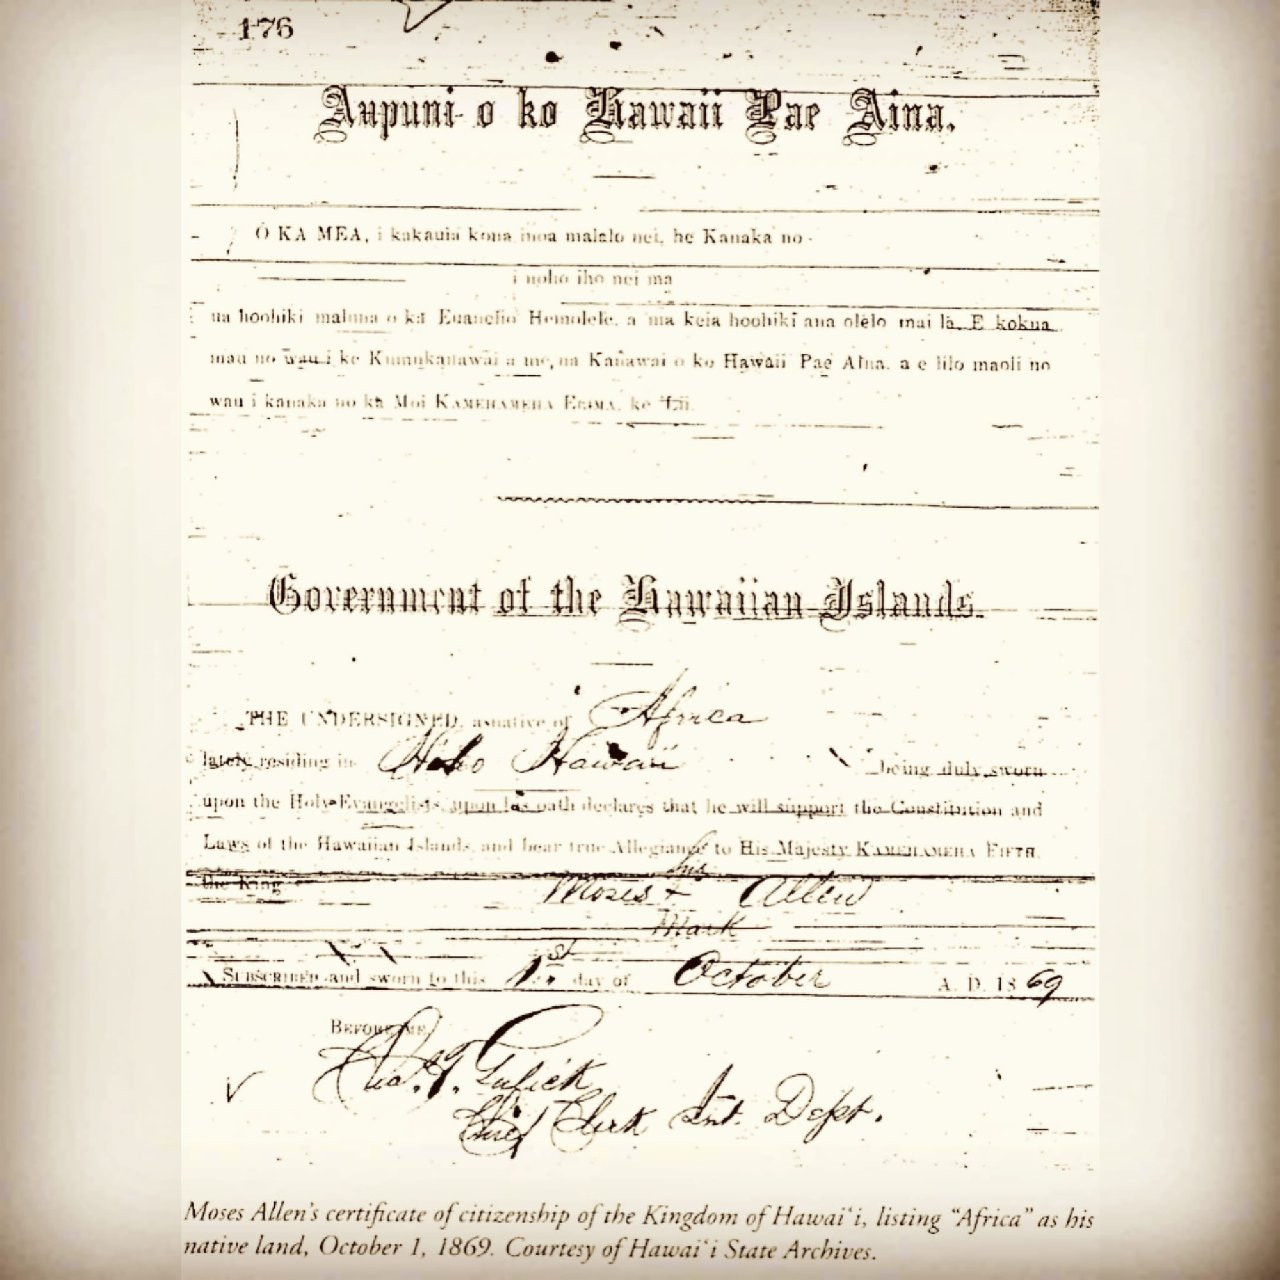 176
Aupuni o ko Hawaii Pae Aina.
O KA MEA, i kakauia kona inoa malalo nei, he Kanaka no
i noho iho nei ma
ua hoohiki maluna o ka Euanelio Hemolele, a ma keia hoohiki ana olelo mai la, E kokua
mau no wau i ke Kumukanawai a me na Kanawai o ko Hawaii Pae Aina, a e lilo maoli no
wau i kanaka no ka Moi KAMEHAMEHA ELIMA, ke
Government of the Hawaiian Islands.
THE UNDERSIGNED, a native of Africa
lately residing in Hilo Hawaii being duly sworn
upon the Holy Evangelists, upon his oath declares that he will support the Constitution and
Laws of the Hawaiian Islands, and bear true Allegiance to His Majesty KAMEHAMEHA FIFTH,
the King
his
Moses + Allen
Mark
SUBSCRIBED and sworn to this 1st day of October A. D. 1869
BEFORE ME
Chas. T. Gulick
Chief Clerk Int. Dept.
Moses Allen's certificate of citizenship of the Kingdom of Hawai‘i, listing “Africa” as his
native land, October 1, 1869. Courtesy of Hawai‘i State Archives.